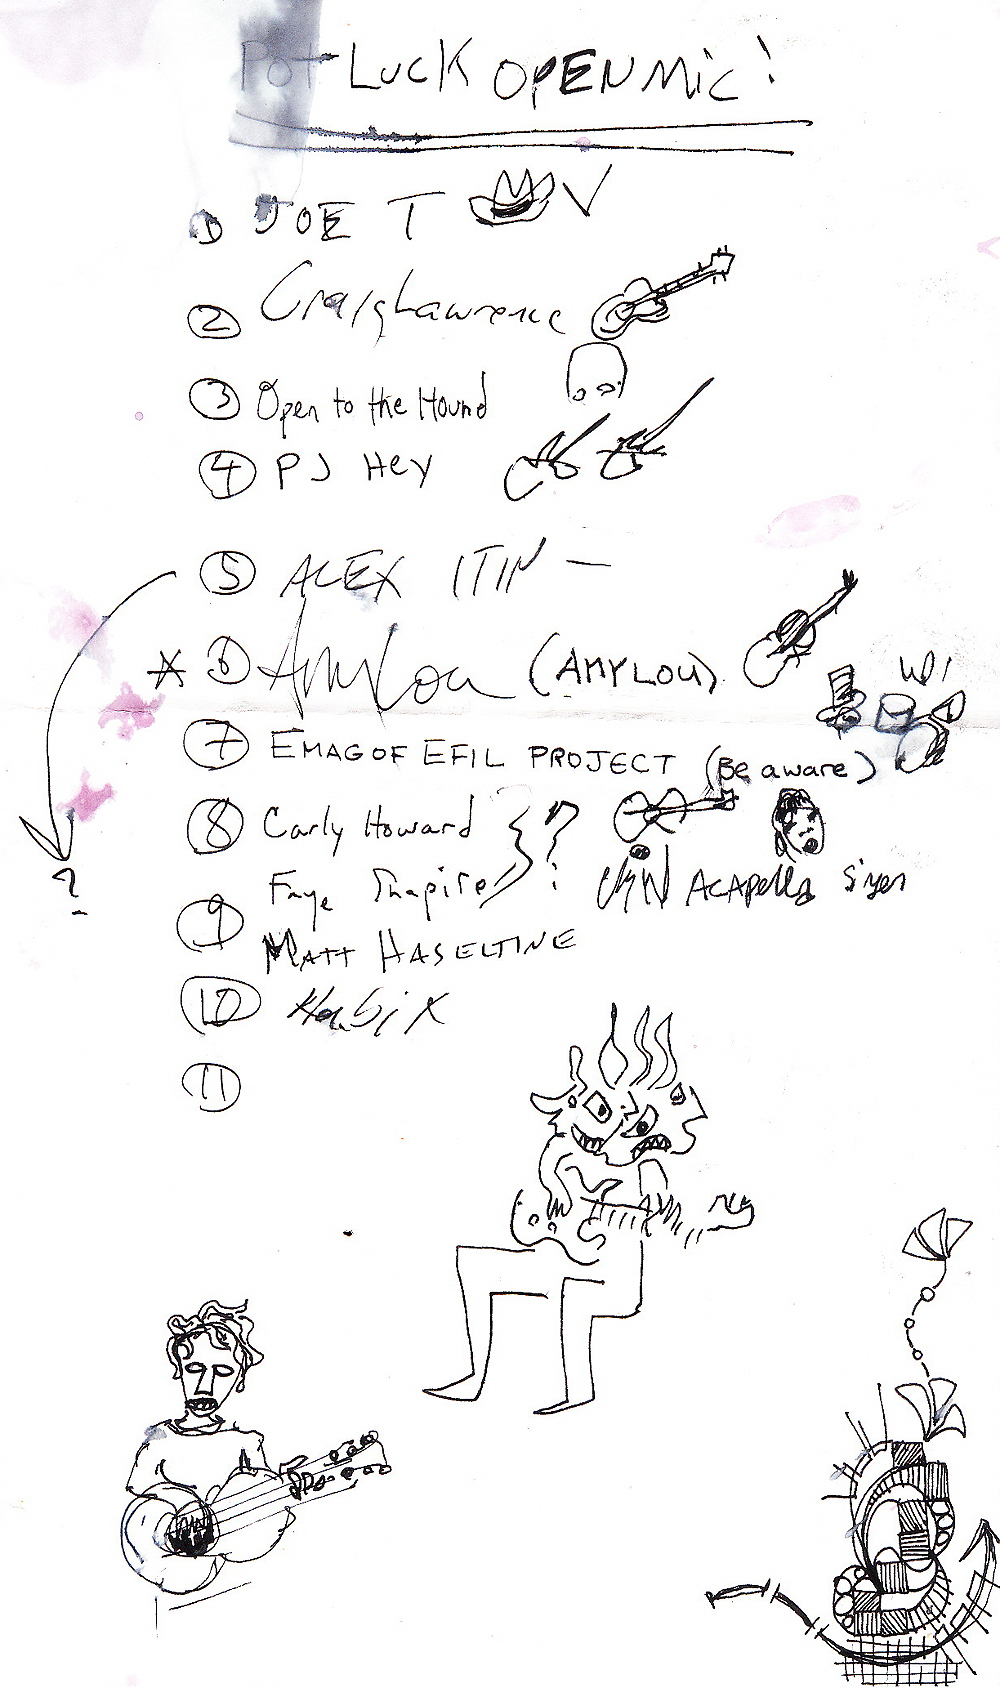 Pot-Luck OPEN Mic!
1 JOE T V
2 Craig Lawrence
3 Open to the Hound
4 PJ Hey
5 ALEX ITIN —
6 AmyLou (AMYLOU)
W/
7 EMAG OF EFIL PROJECT (Be aware)
8 Carly Howard } ?
Faye Shapiro
ACApella
9 MATT HASELTINE
10
11
?